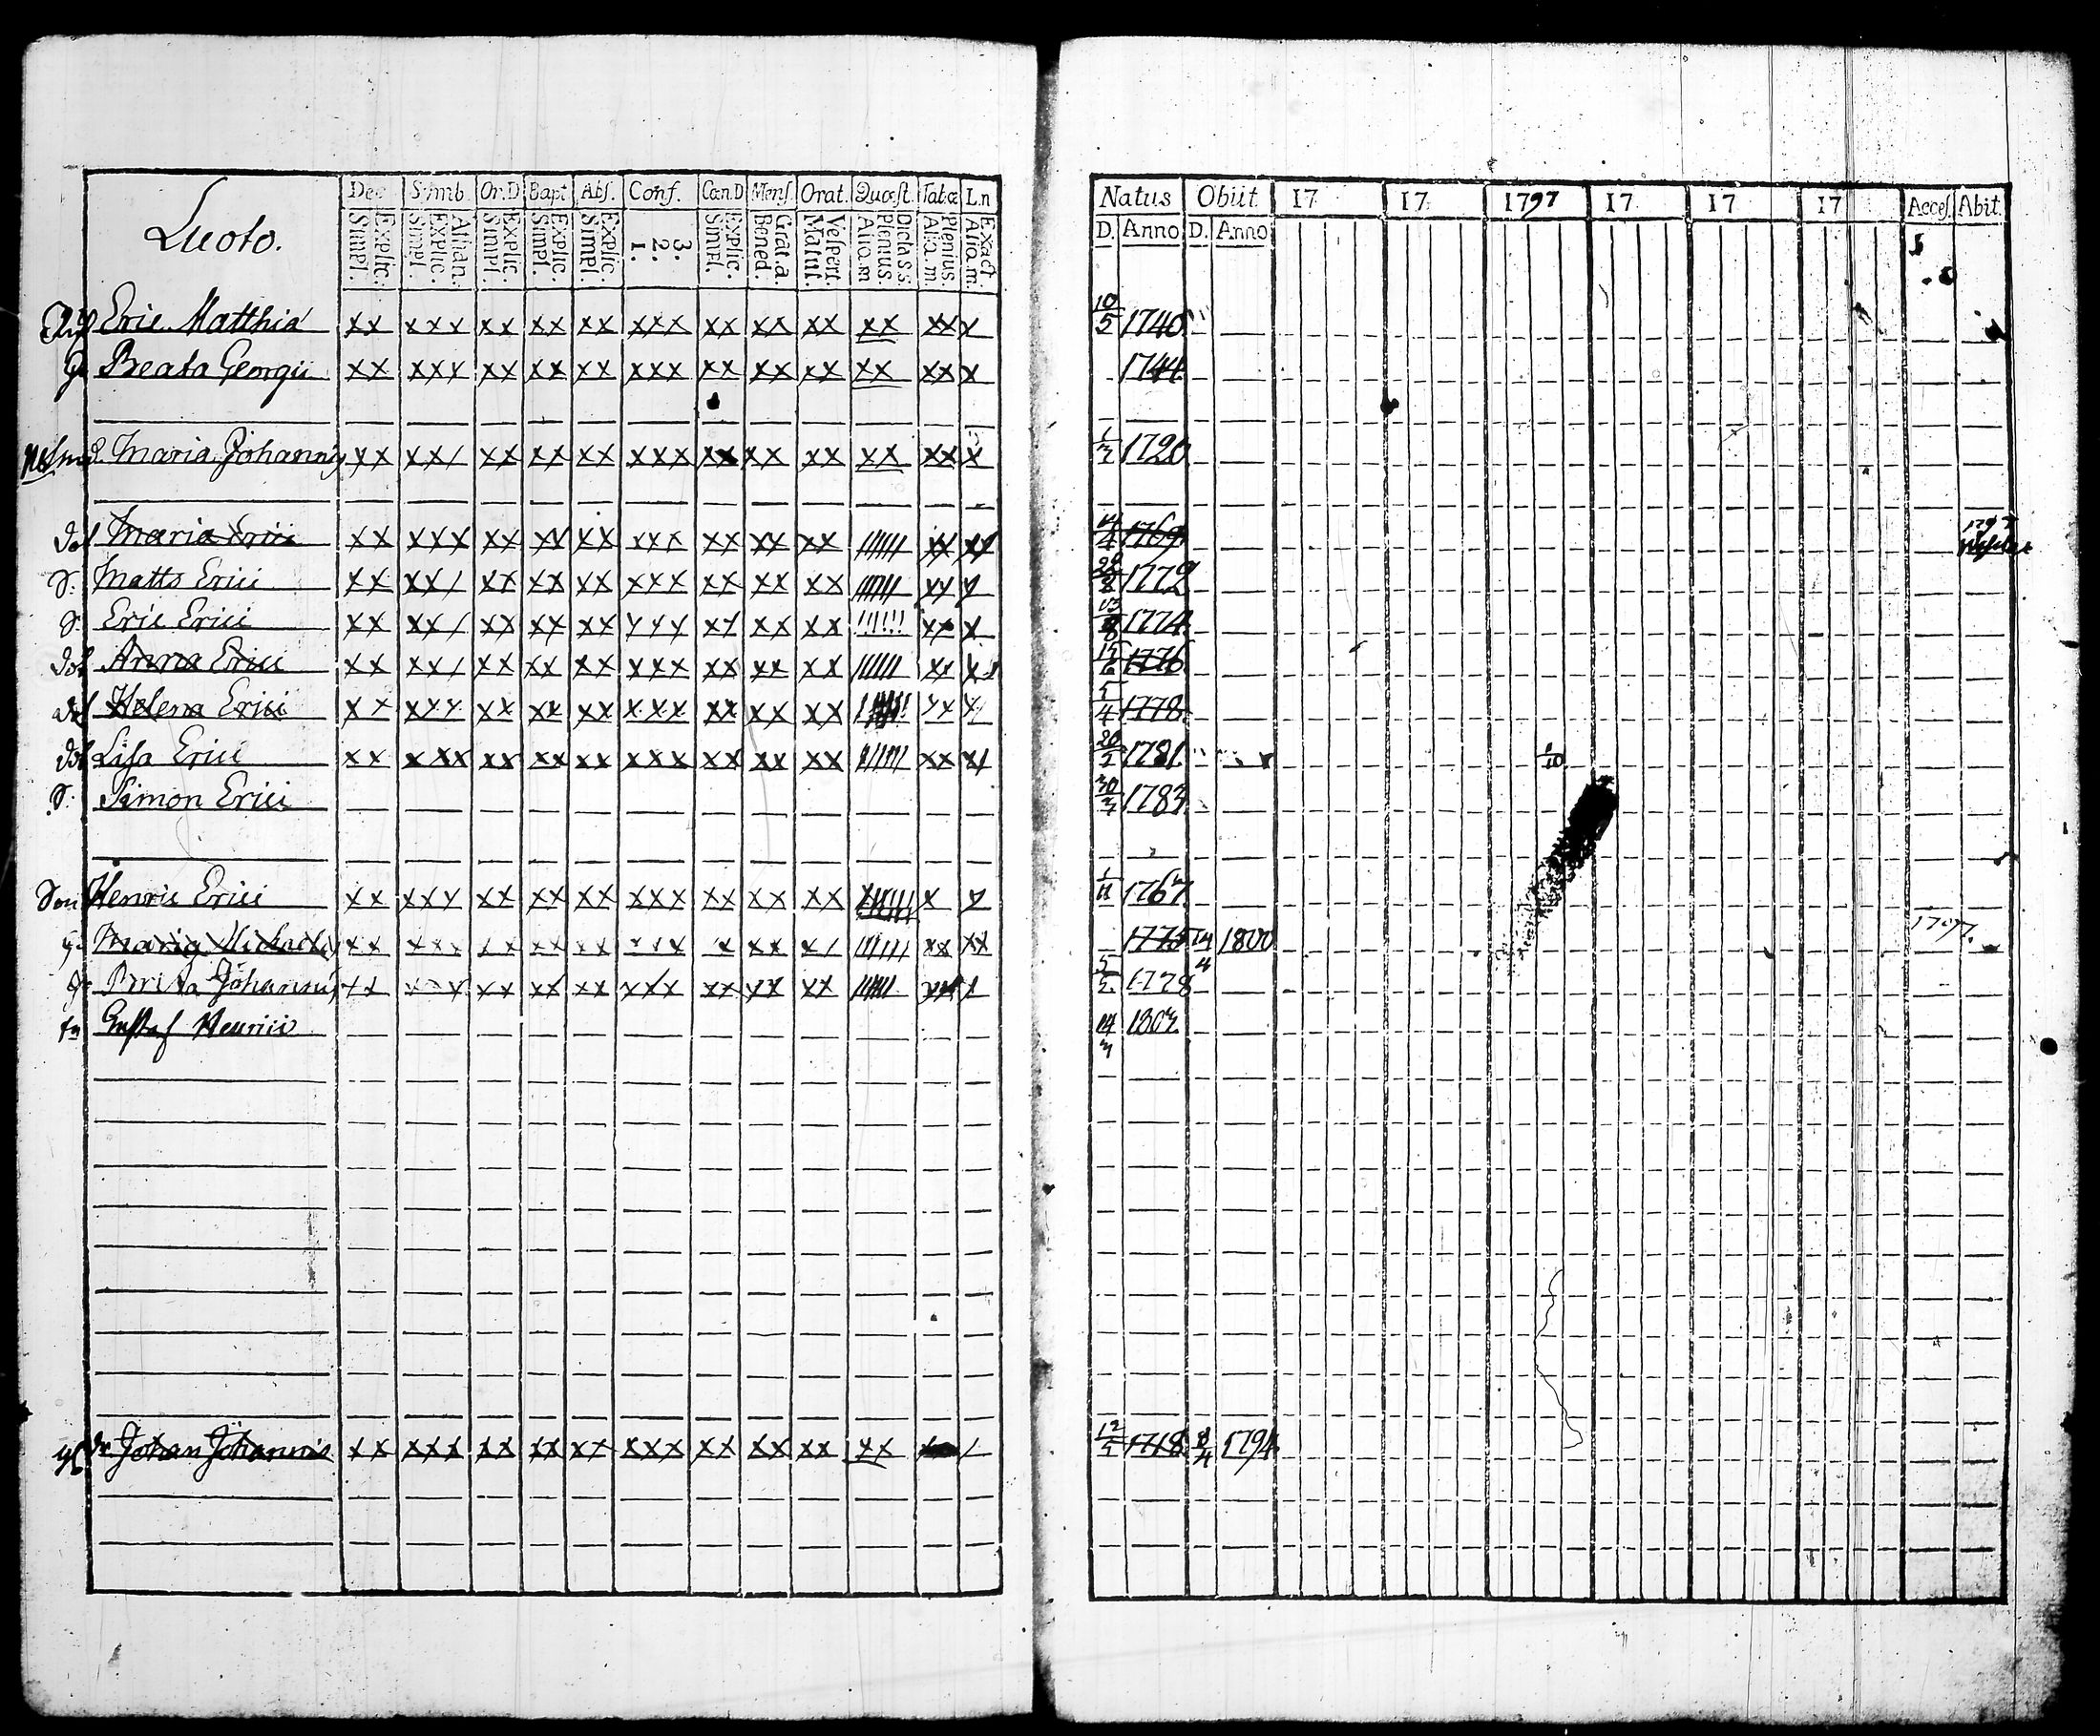 Luoto.
Dec. Simb. Or.D Bapt Abs. Conf. Can.D Mens. Orat. Quæst. Tabæ Ln
Explic. Simpl. Athan. Explic. Simpl. Explic. Simpl. Explic. Simpl. Explic Simpl. 3. 2. 1. Explic. Simpl. Grat.a. Bened. Vespert. Matut. Dicta S.s. Plenius. Aliq.m Plenius. Aliq.m. Exact Aliq.m.
Natus Obiit 17 17 1797 17 17 17 Acces. Abit.
D. Anno D. Anno
Eric Matthiæ xx xxx xx xx xx xxx xx xx xx xx xx x 10/5 1740.
Beata Georgii xx xxx xx xx xx xxx xx xx xx xx xx x 1744
Maria Johannis xx xx/ xx xx xx xxx xx xx xx xx xx x 1720
dot Maria Erici xx xxx xx xx xx xxx xx xx xx ////// xx xx 1769. 1797
S. Matts Erici xx xx/ xx xx xx xxx xx xx xx ////// xx x 1772
S. Eric Erici xx xx/ xx xx xx xxx xx xx xx !!!!!! xx x 1774.
dot Anna Erici xx xx/ xx xx xx xxx xx xx xx ////// xx x 1776
dot Helena Erici xx xxx xx xx xx xxx xx xx xx xx x 5/4 1778.
dot Lisa Erici xx xxx xx xx xx xxx xx xx xx ////// xx x/ 20/2 1781.
S. Simon Erici 1783.
Son Henric Erici xx xxx xx xx xx xxx xx xx xx x x 1/11 1767
Maria Michaelis xx xxx xx xx xx xxx xx xx x/ ////// xx xx 1775 14/4 1800 1797.
Brita Johannis xx xxx xx xx xx xxx xx xx xx ////// xx x 5/2 1778
Gustaf Henrici 14/3 1803
Johan Johannis xx xxx xx xx xx xxx xx xx xx xx / 1718. 1794.